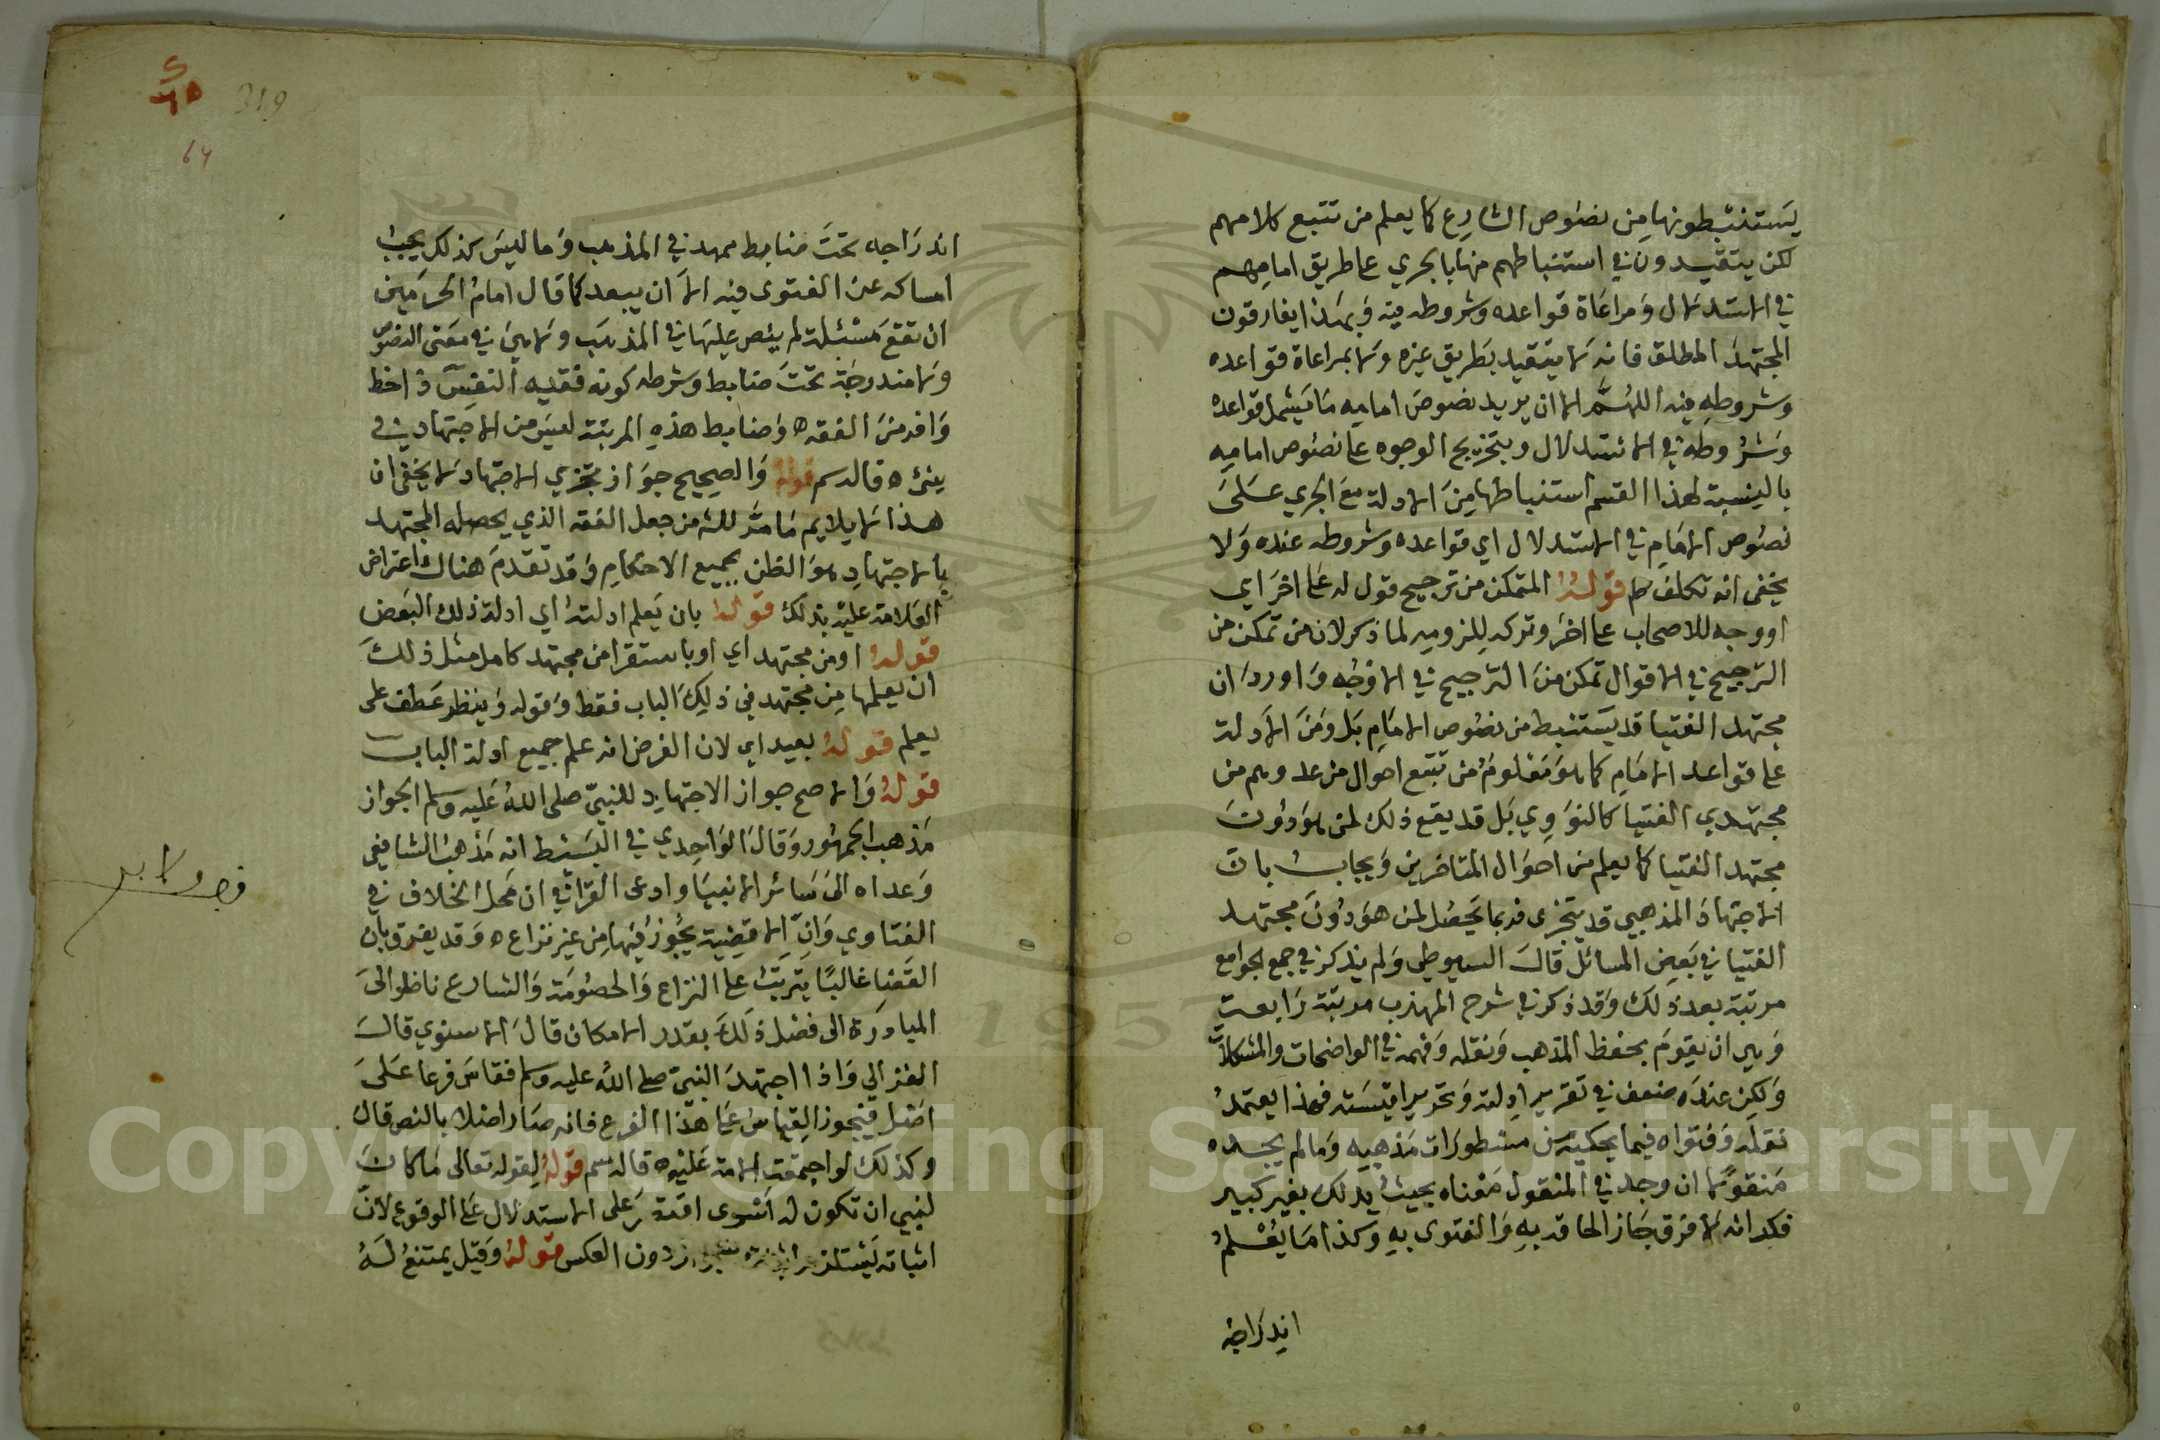 يستنبطونها من نصوص الشارع كما يعلم من تتبع كلامهم
لكن يتقيدون في استنباطهم منها بالجري على طريق امامهم
في الاستدلال ومراعاة قواعده وشروطه فيه وبهذا يفارقون
المجتهد المطلق فانه لا يتقيد بطريق غيره ولا بمراعاة قواعده
وشروطه فيه اللهم الا ان يريد نصوص امامه ما يشمل قواعده
وشروطه في الاستدلال وبتخريج الوجوه على نصوص امامه
بالنسبة لهذا القسم استنباطها من الادلة مع الجري على
نصوص الامام في الاستدلال اي قواعده وشروطه عنده ولا
يخفى انه تكلف قوله المتمكن من ترجيح قول له على اخر اي
او وجه للاصحاب على اخر وتركه للزومه لما ذكر لان من تمكن من
الترجيح في الاقوال تمكن من الترجيح في الاوجه واورد ان
مجتهد الفتيا قد يستنبط من نصوص الامام بل ومن الادلة
على قواعد الامام كما هو معلوم من تتبع احوال من عدوهم من
مجتهدي الفتيا كالنووي بل قد يقع ذلك لمن هو دون
مجتهد الفتيا كما يعلم من احوال المتاخرين ويجاب بان
الاجتهاد المذهبي قد يتجزى فربما يحصل لمن هو دون مجتهد
الفتيا في بعض المسائل قال السيوطي ولم يذكر في جمع الجوامع
مرتبة بعد ذلك وقد ذكر في شرح المهذب مرتبة رابعة
وهي ان يقوم بحفظ المذهب ونقله وفهمه في الواضحات والمشكلات
ولكن عنده ضعف في تقرير ادلته وتحرير اقيسته فهذا يعتمد
نقله وفتواه فيما يحكيه من مسطورات مذهبه وما لم يجده
منقولا ان وجد في المنقول معناه بحيث يدرك بغير كبير
فكر انه لا فرق جاز الحاقه به والفتوى به وكذا ما يعلم
اندراجه
319
64
اندراجه تحت ضابط ممهد في المذهب وما ليس كذلك يجب
امساكه عن الفتوى فيه الا ان يبعد كما قال امام الحرمين
ان تقع مسئلة لم ينص عليها في المذهب ولا هي في معنى النصوص
ولا مندرجة تحت ضابط وشرطه كونه فقيه النفس ذا حظ
وافر من الفقه ه وضابط هذه المرتبة ليس من الاجتهاد في
شيء ه قاله سم قوله والصحيح جواز تجزي الاجتهاد لا يخفى ان
هذا لا يلايم ما مر للش من جعل الفقه الذي يحصله المجتهد
بالاجتهاد هو الظن بجميع الاحكام وقد تقدم هناك اعتراض
العلامة عليه بذلك قوله بان يعلم ادلته اي ادلة ذلك البعض
قوله او من مجتهد اي او باستقرا من مجتهد كامل مثل ذلك
ان يعلمها من مجتهد في ذلك الباب فقط وقوله وينظر عطف على
يعلم قوله بعيد اي لان الفرض انه علم جميع ادلة الباب
قوله والاصح جواز الاجتهاد للنبي صلى الله عليه وسلم الجواز
مذهب الجمهور وقال الواحدي في البسيط انه مذهب الشافعي
وعداه الى سائر الانبيا وادعى القرافي ان محل الخلاف في
الفتاوي وان الاقضية يجوز فيها من غير نزاع ه وقد يفرق بان
القضا غالبا يترتب على النزاع والخصومة والشارع ناظر الى
المبادرة الى فصل ذلك بقدر الامكان قال الاسنوي قال
الغزالي واذا اجتهد النبي صلى الله عليه وسلم فقاس فرعا على
اصل فيجوز القياس على هذا الفرع فانه صار اصلا بالنص قال
وكذلك لو اجمعت الامة عليه ه قاله سم قوله لقوله تعالى ما كان
لنبي ان تكون له اسرى اقتصر على الاستدلال على الوقوع لان
اثباته يستلزم دون العكس قوله وقيل يمتنع له